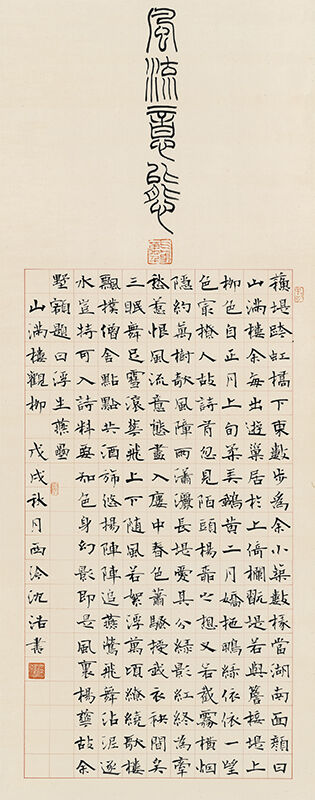 風流意態
蘇堤跨虹橋下東數步為余小築數椽當湖南面顏曰
山滿樓余每出遊巢居於上倚欄翫堤若與簷接堤上
柳色自正月上旬柔弄鵝黃二月嬌拖鴨綠依依一望
色最撩人故詩有忽見陌頭楊柳之想又若截霧橫烟
隱約萬樹欹風障雨瀟灑長堤愛其分綠影紅終為牽
愁惹恨風流意態盡入樓中春色蕭騷授我衣袂間矣
三眠舞足雪滾華飛上下隨風若絮浮萬頃繚繞歌樓
飄撲僧舍點點共酒旆悠揚陣陣追燕鶯飛舞沾泥逐
水豈特可入詩料要知色身幻影即是風裏楊華故余
墅額題曰浮生燕壘
山滿樓觀柳 戊戌秋月西泠沈浩書